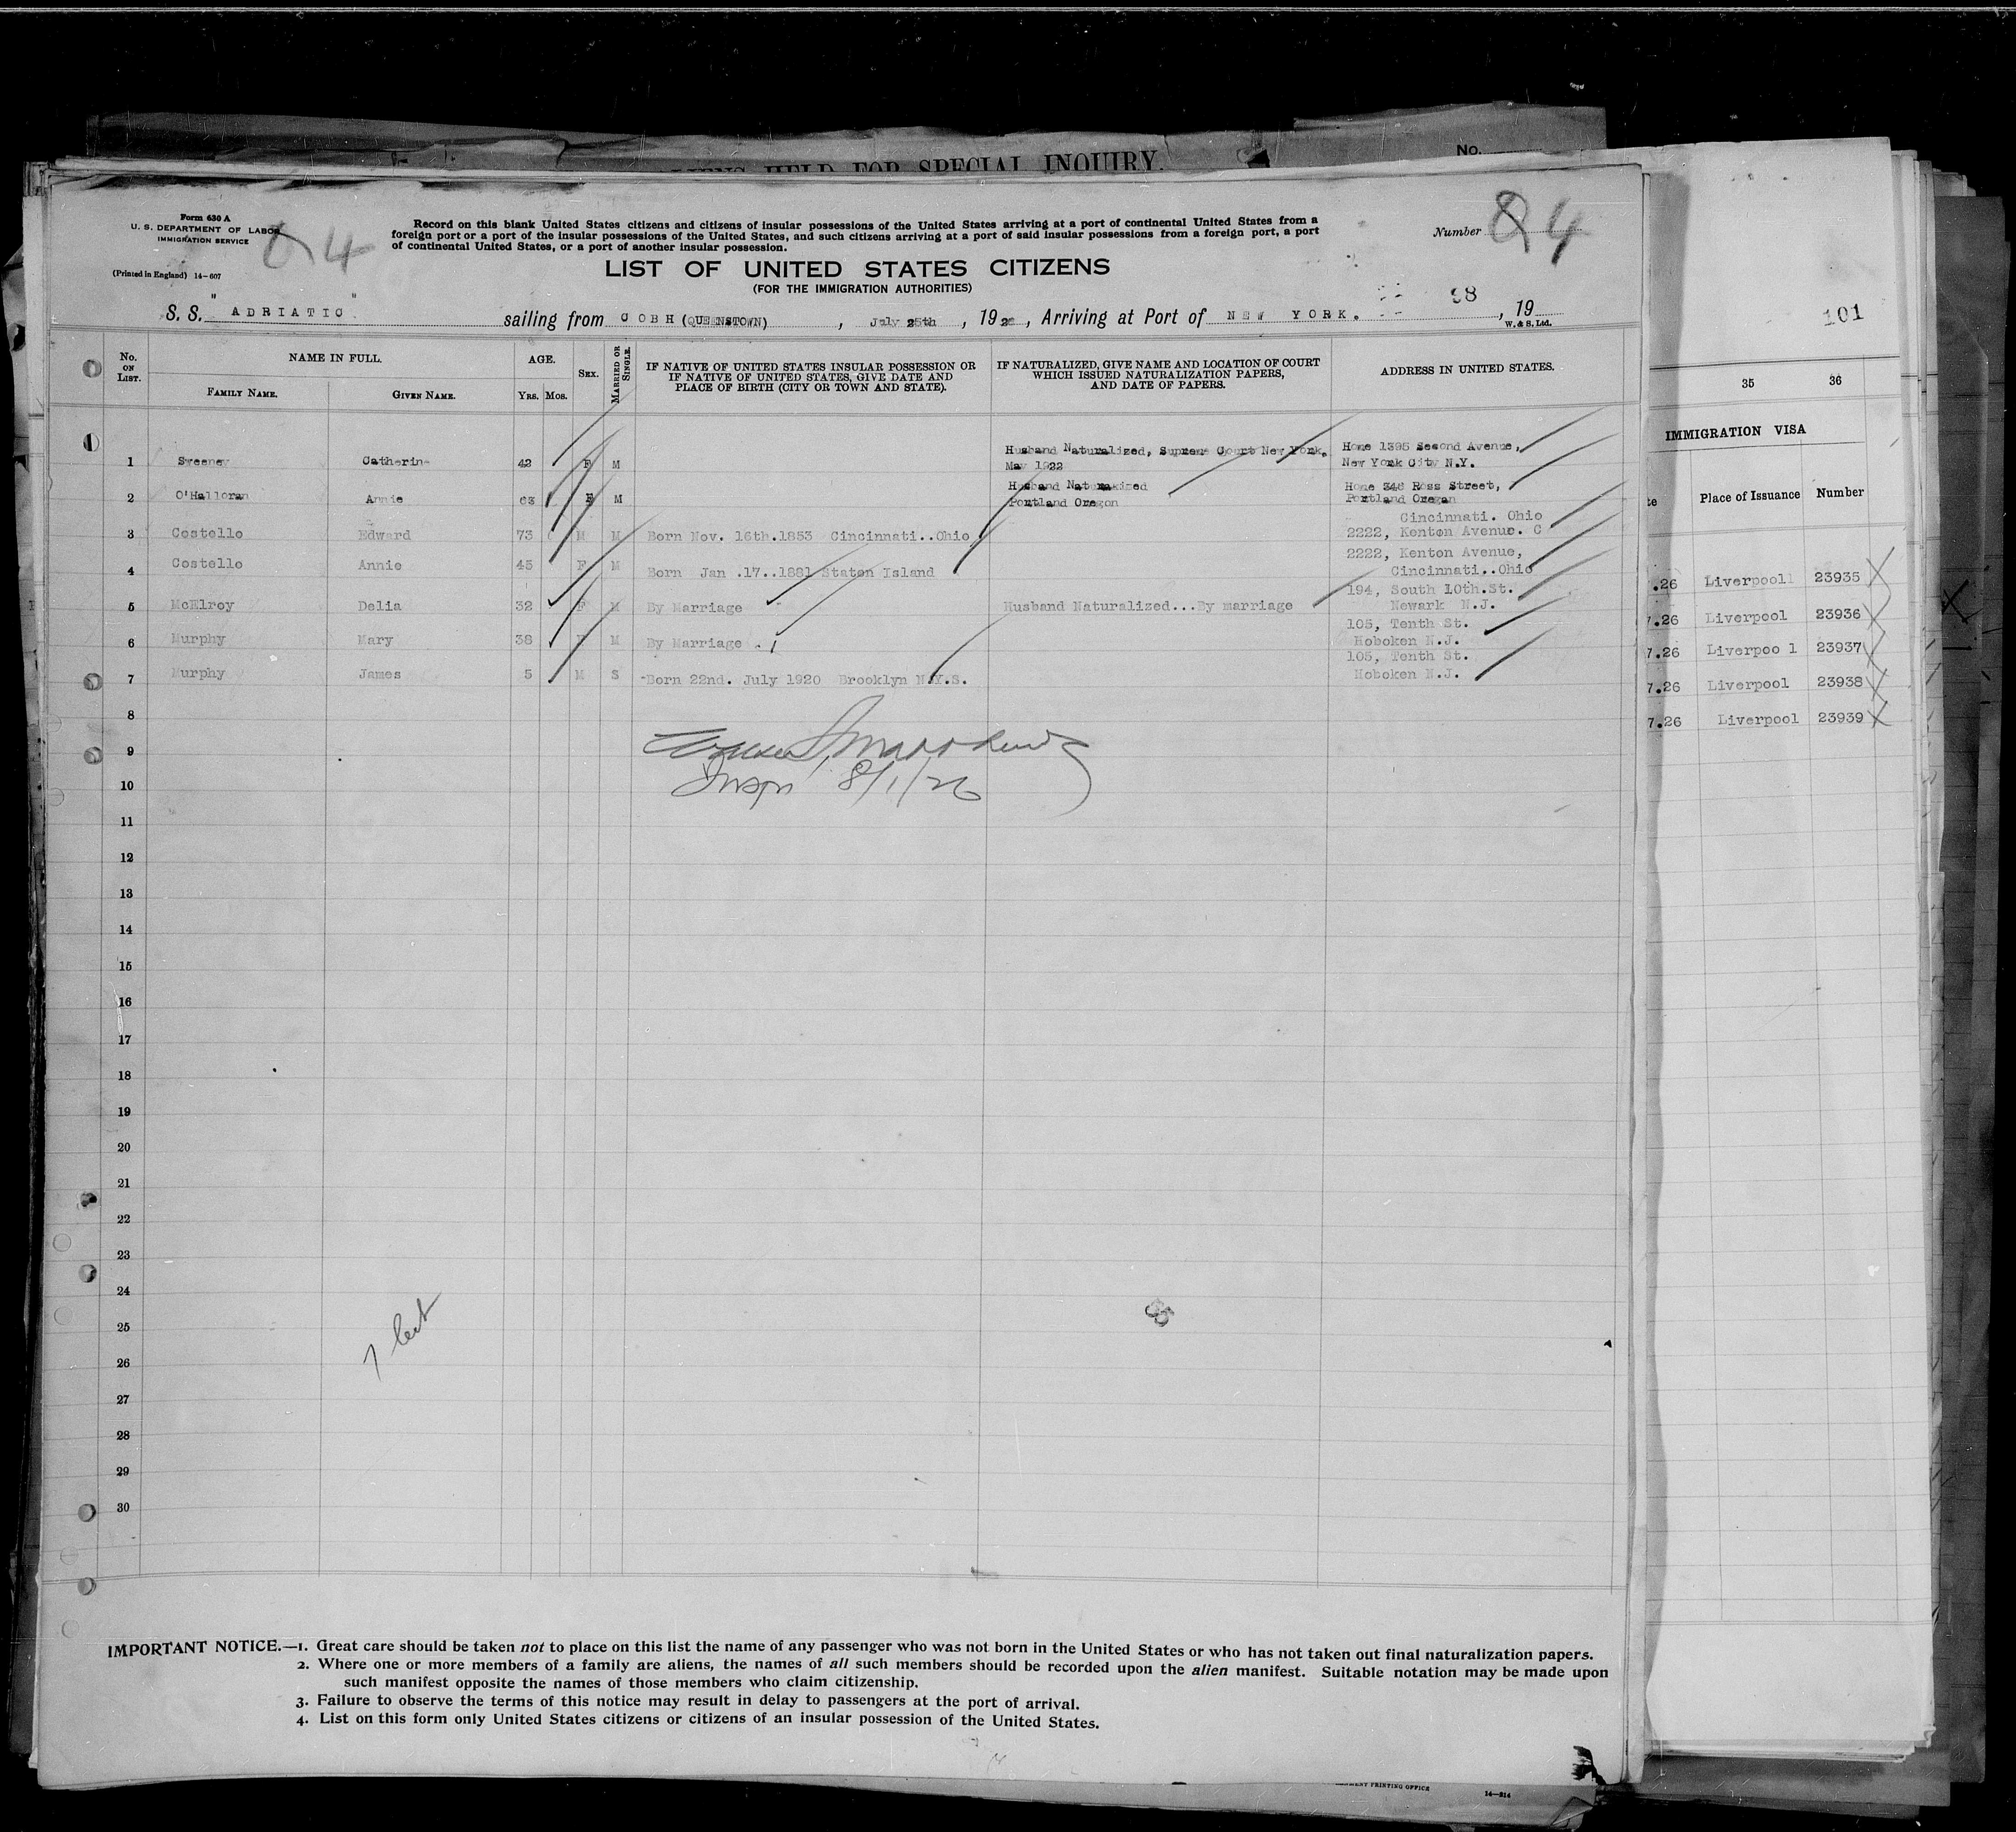 ALIENS HELD FOR SPECIAL INQUIRY.
No.
Form 630 A
U. S. DEPARTMENT OF LABOR
IMMIGRATION SERVICE
84
(Printed in England) 14-607
Record on this blank United States citizens and citizens of insular possessions of the United States arriving at a port of continental United States from a
foreign port or a port of the insular possessions of the United States, and such citizens arriving at a port of said insular possessions from a foreign port, a port
of continental United States, or a port of another insular possession.
Number 84
LIST OF UNITED STATES CITIZENS
(FOR THE IMMIGRATION AUTHORITIES)
S. S. "ADRIATIC" sailing from COBH (QUEENSTOWN), July 25th, 1926, Arriving at Port of NEW YORK. 98, 19
W. & S. Ltd.
No. ON LIST.
NAME IN FULL.
FAMILY NAME.
GIVEN NAME.
AGE.
YRS. MOS.
SEX.
MARRIED OR SINGLE.
IF NATIVE OF UNITED STATES INSULAR POSSESSION OR
IF NATIVE OF UNITED STATES, GIVE DATE AND
PLACE OF BIRTH (CITY OR TOWN AND STATE).
IF NATURALIZED, GIVE NAME AND LOCATION OF COURT
WHICH ISSUED NATURALIZATION PAPERS,
AND DATE OF PAPERS.
ADDRESS IN UNITED STATES.
1 Sweeney Catherine 42 F M Husband Naturalized, Supreme Court New York. Home 1395 Second Avenue,
May 1922 New York City N.Y.
2 O'Halloran Annie 63 F M Husband Naturakized Home 348 Ross Street,
Portland Oregon Portland Oregan
Cincinnati. Ohio
3 Costello Edward 73 M M Born Nov. 16th.1853 Cincinnati..Ohio 2222, Kenton Avenue. C
2222, Kenton Avenue,
4 Costello Annie 45 F M Born Jan .17..1881 Staten Island Cincinnati..Ohio
194, South 10th.St.
5 McElroy Delia 32 F M By Marriage Husband Naturalized...By marriage Newark N.J.
105, Tenth St.
6 Murphy Mary 38 F M By Marriage . Hoboken N.J.
105, Tenth St.
7 Murphy James 5 M S -Born 22nd. July 1920 Brooklyn N.Y.S. Hoboken N.J.
8
9
Insp 8/1/26
10
11
12
13
14
15
16
17
18
19
20
21
22
23
24
25
26
27
28
29
30
85
IMPORTANT NOTICE.—1. Great care should be taken not to place on this list the name of any passenger who was not born in the United States or who has not taken out final naturalization papers.
2. Where one or more members of a family are aliens, the names of all such members should be recorded upon the alien manifest. Suitable notation may be made upon
such manifest opposite the names of those members who claim citizenship.
3. Failure to observe the terms of this notice may result in delay to passengers at the port of arrival.
4. List on this form only United States citizens or citizens of an insular possession of the United States.
101
35 36
IMMIGRATION VISA
te Place of Issuance Number
.26 Liverpool 23935
7.26 Liverpool 23936
7.26 Liverpoo l 23937
7.26 Liverpool 23938
7.26 Liverpool 23939
PRINTING OFFICE
14-214